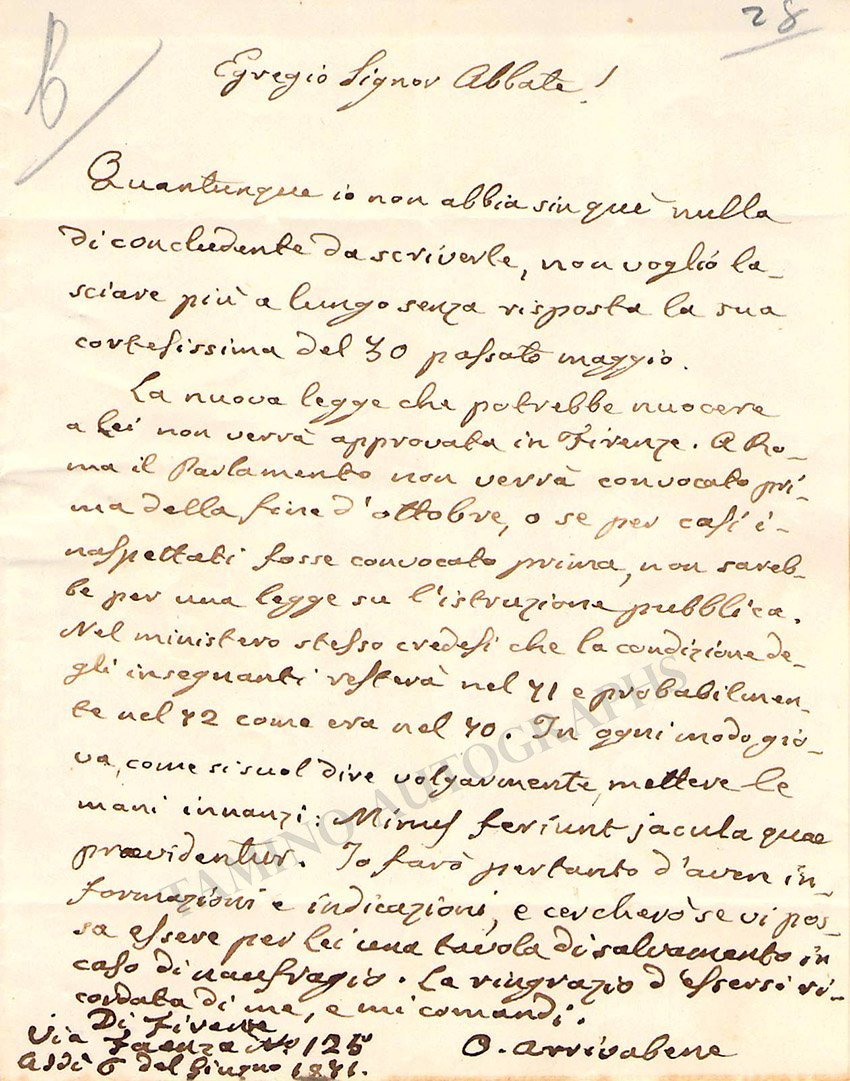 6
28
Egregio Signor Abbate!
Quantunque io non abbia sin quì nulla
di concludente da scriverle, non voglio la-
sciare più a lungo senza risposta la sua
cortesissima del 30 passato maggio.
La nuova legge che potrebbe nuocere
a Lei non verrà approvata in Firenze. A Ro-
ma il Parlamento non verrà convocato pri-
ma della fine d'ottobre, o se per casi i-
naspettati fosse convocato prima, non sareb-
be per una legge su l'istruzione pubblica.
Nel ministero stesso credesi che la condizione de-
gli insegnanti resterà nel 71 e probabilmen-
te nel 72 come era nel 70. In ogni modo gio-
va, come si suol dire volgarmente, mettere le
mani innanzi: Minus feriunt jacula quae
praevidentur. Io farò pertanto d'avere in-
formazioni e indicazioni, e cercherò se vi pos-
sa essere per lei una tavola di salvamento in
caso di naufragio. La ringrazio d'essersi ri-
cordata di me, e mi comandi.
Di Firenze
Via Faenza No. 125
Addì 6 del Giugno 1871.
O. Arrivabene
TAMINO AUTOGRAPHS